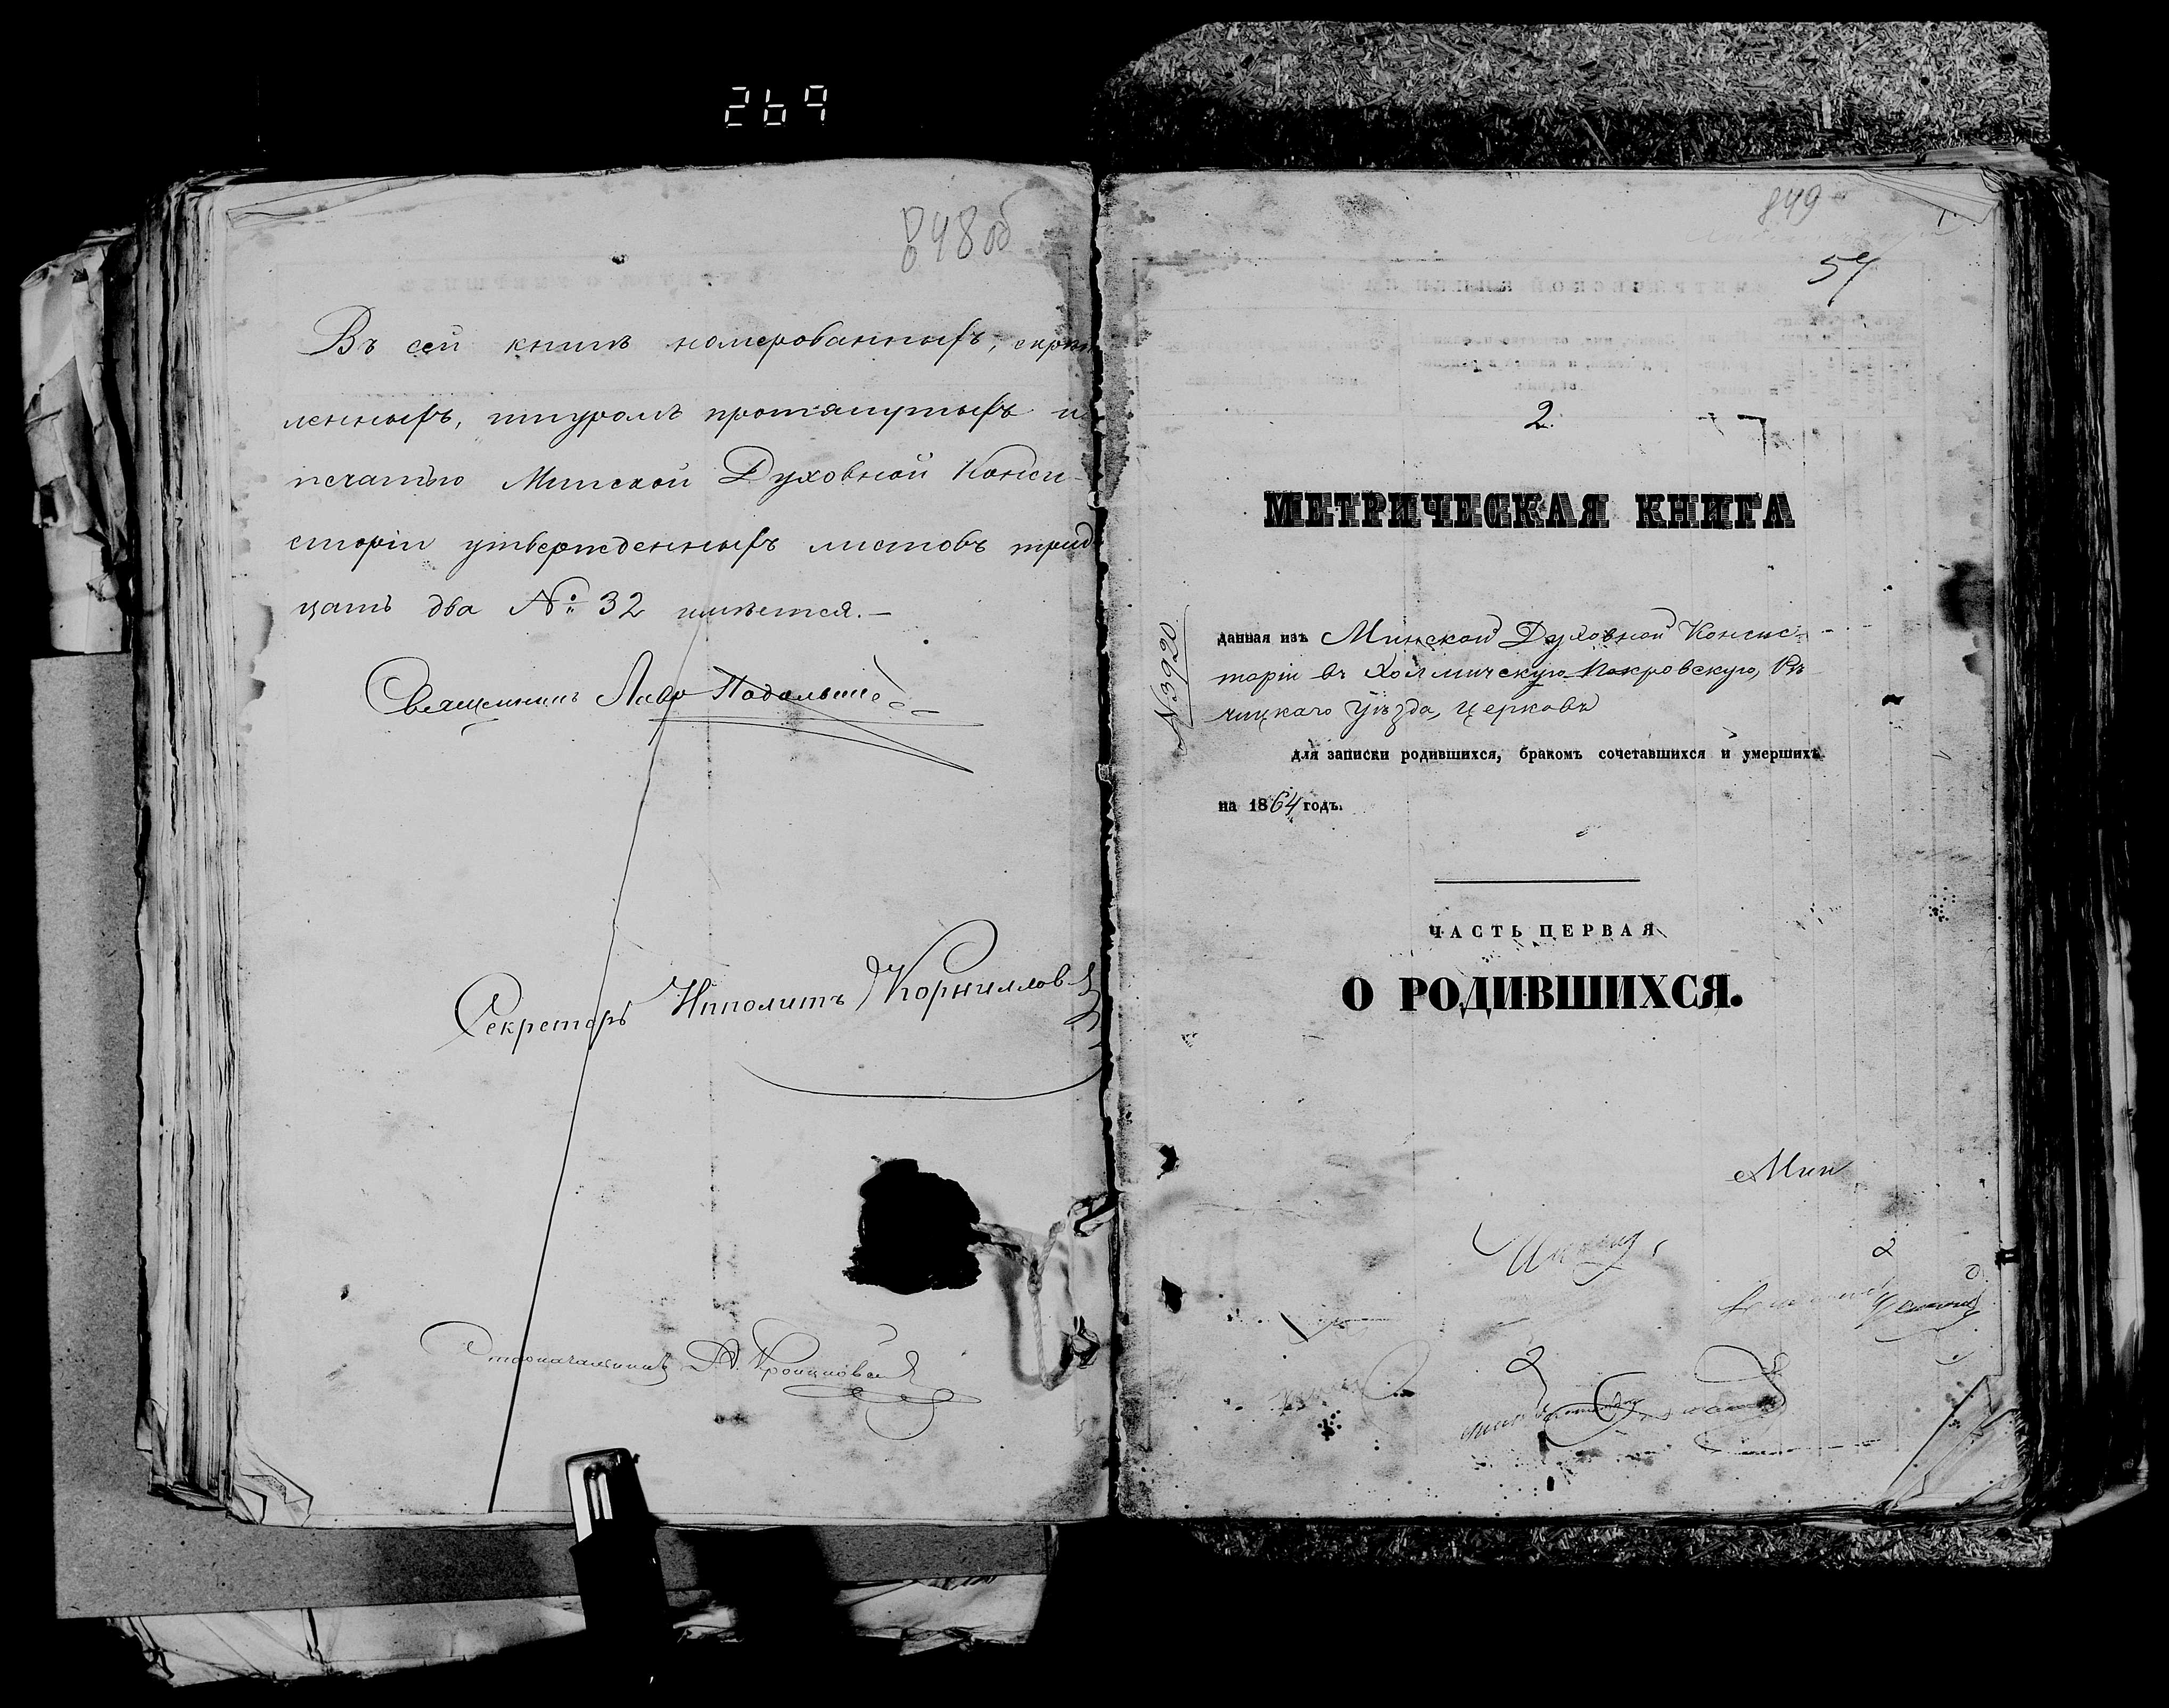 269
848 об
Въ сей книгѣ номерованныхъ, скрѣп
ленныхъ, шнуромъ протянутыхъ и
печатью Минской Духовной Конси-
сторіи утвержденныхъ листовъ трид
цать два № 32 имѣется.—
Священникъ
Секретарь Ипполитъ Корниллов
Столоначальникъ
849
57
2.
МЕТРИЧЕСКАЯ КНИГА
№ 3920
данная изъ Минской Духовной Консис-
торіи въ Холмичскую Покровскую, Рѣ
чицкаго уѣзда, церковь
для записки родившихся, бракомъ сочетавшихся и умершихъ
на 1864 годъ.
ЧАСТЬ ПЕРВАЯ
О РОДИВШИХСЯ.
Мин